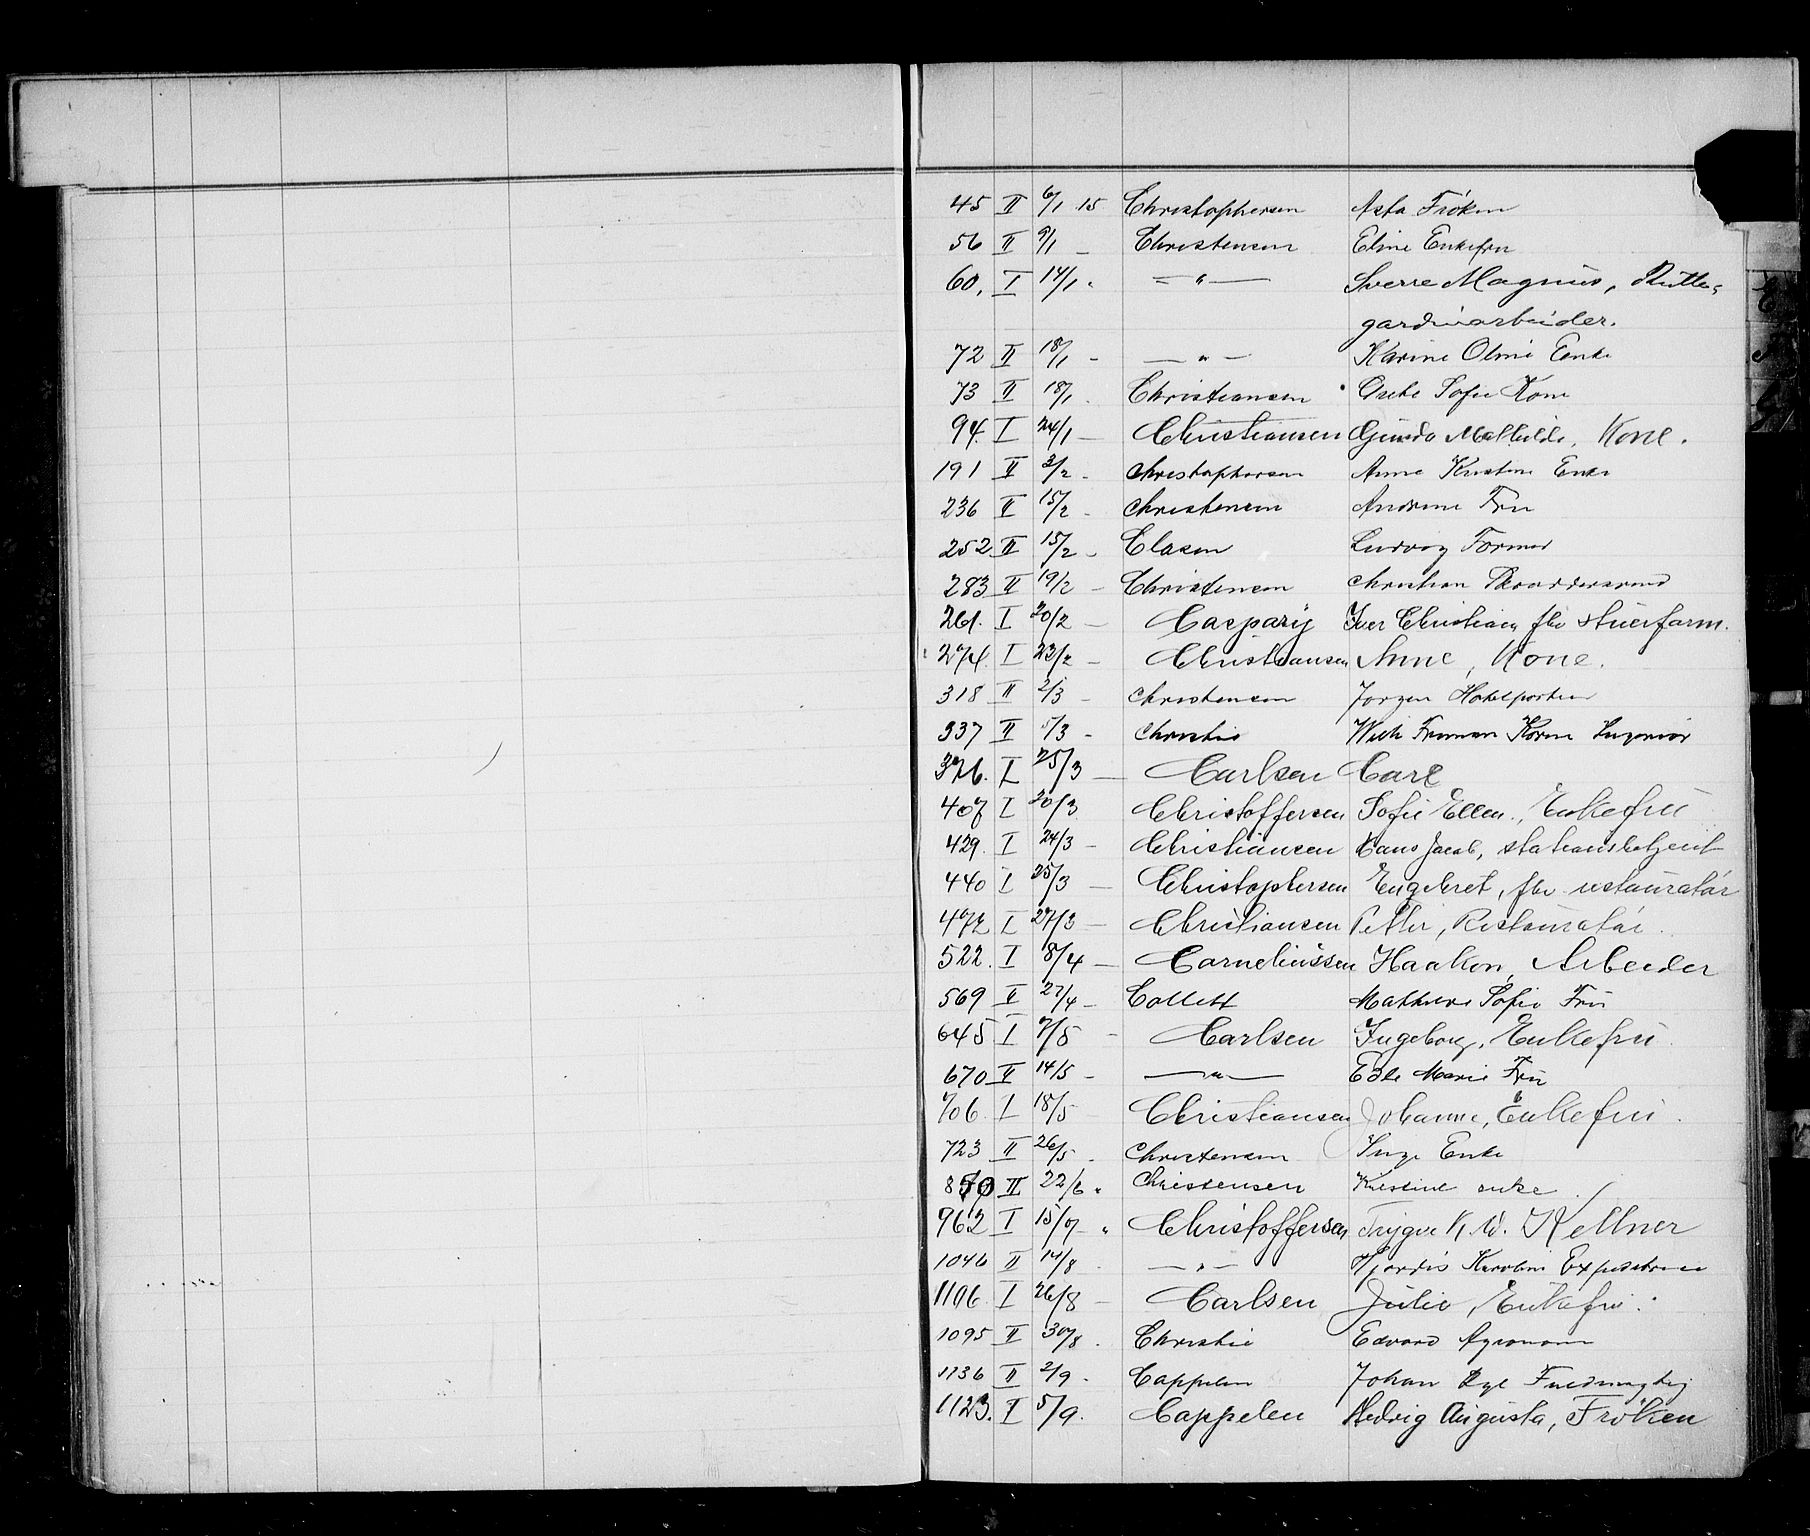 45 II 6/1 15 Christophersen Asta Frøken
56 II 9/1 – Christensen Eline Enkefru
60. I 14/1 " — " — Sverre Magnus, Rulle-
gardinarbeider.
72 II 18/1 – — " — Karine Oline Enke
73 II 18/1 . Christiansen Grete Sofie Kone
94 I 24/1 – Christiansen Gunda Mathilde, Kone.
191 II 3/2 - Christophersen Anne Kristine Enke
236 II 15/2 - Christensen Andrine Fru
252 II 15/2 - Clasen Ludvig Former
283 II 19/2 – Christensen Christian
261. I 20/2 — Caspary Iver Christian fhv stuerform.
274. I 23/2 – Christiansen Anne, Kone.
318 II 2/3 – Christensen Jørgen Hotelportier
337 II 5/3 - Christie Wilh Ingeniør
376. I 25/3 — Carlsen Carl
407 I 20/3 Christoffersen Sofie Ellen, Enkefru
429. I 24/3 – Christiansen Hans Jacob, stationsbetjent
440 I 25/3 — Christophersen Engebret, fhv restauratør
472 I 27/3 — Christiansen Petter, Restauratør.
522. I 8/4 — Corneliussen Haakon, Arbeider
569 II 27/4 – Collett Mathilde Sofie Fru
645 I 7/5 - Carlsen Ingeborg, Enkefru.
670 II 14/5 - — " — Edle Marie Fru
706. I 18/5 Christiansen Johanne, Enkefru.
723 II 26/5 . Christensen Inge Enke
850 II 22/6 " Christensen Kristine enke
962 I 15/07 " Christoffersen Trygve K. W. Kellner
1046 II 14/8 — " — Hjørdis Karoline Expeditrice
1106 I 26/8 – Carlsen Julie, Enkefru.
1095 II 30/8 . Christie Edvard Agronom
1136 II 2/9 . Cappelen Johan Fuldmægtig
1123. I 5/9. Cappelen Hedvig Augusta, Frøken